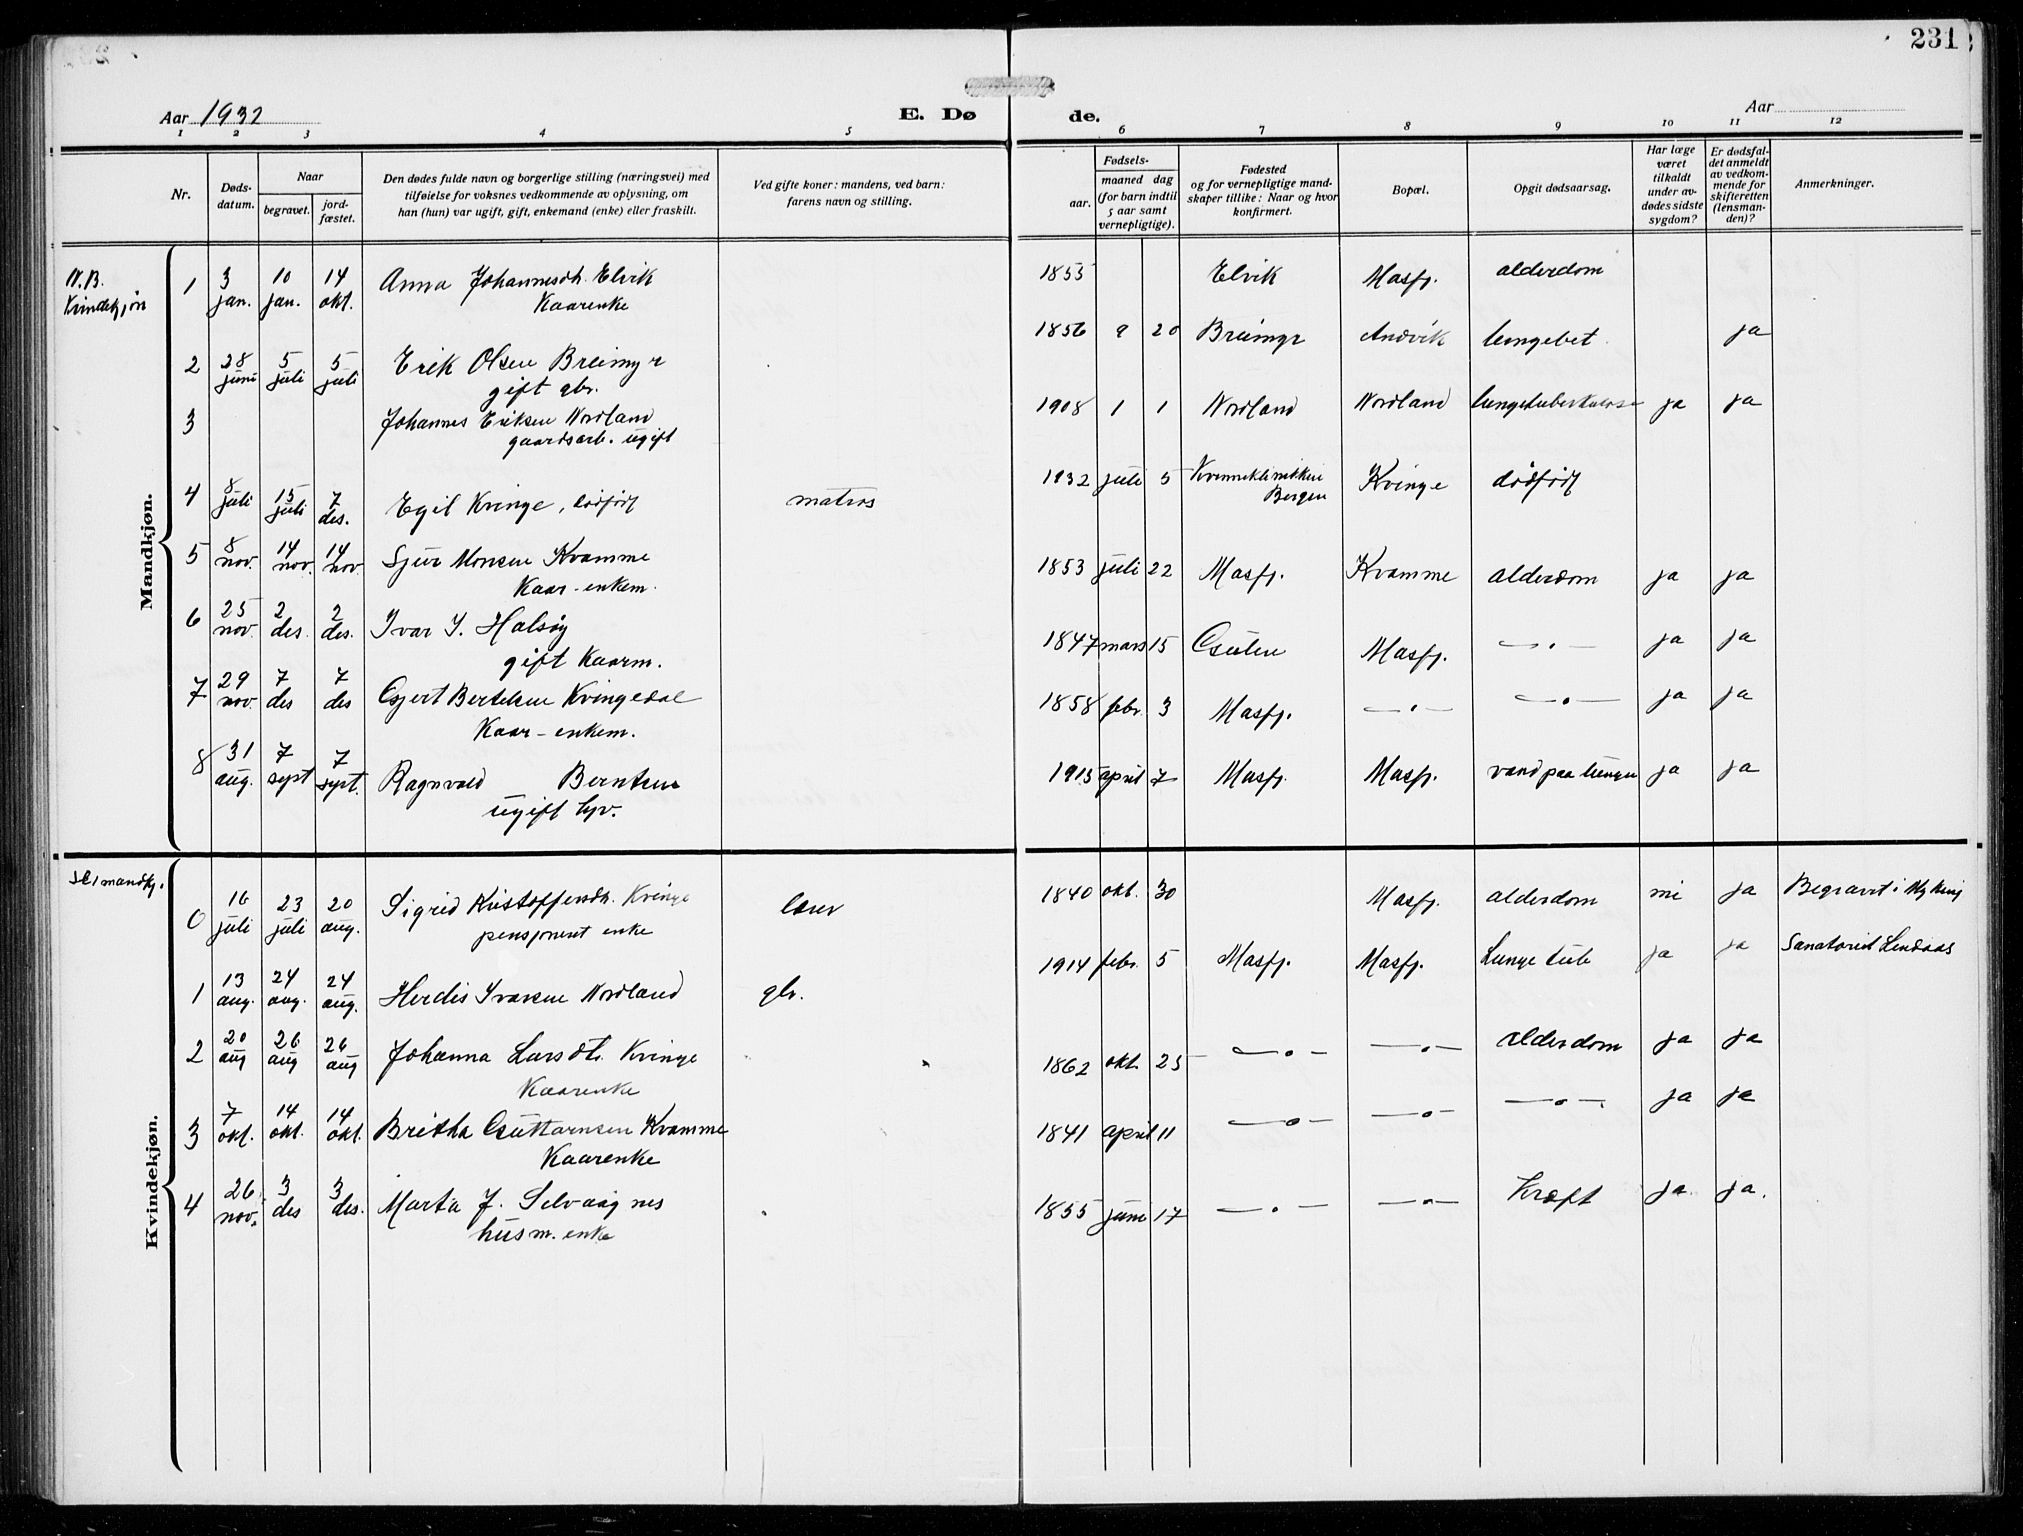 231
Aar 1932
E. Dø
de.
Aar
1 2 3 4 5 6 7 8 9 10 11 12
Nr.
Døds-
datum.
Naar
begravet.
jord-
fæstet.
Den dødes fulde navn og borgerlige stilling (næringsvei) med
tilføielse for voksnes vedkommende av oplysning, om
han (hun) var ugift, gift, enkemand (enke) eller fraskilt.
Ved gifte koner: mandens, ved barn:
farens navn og stilling.
Fødsels-
aar.
maaned dag
(for barn indtil
5 aar samt
vernepligtige).
Fødested
og for vernepligtige mand-
skaper tillike: Naar og hvor
konfirmert.
Bopæl.
Opgit dødsaarsag.
Har læge
været
tilkaldt
under av-
dødes sidste
sygdom?
Er dødsfal-
det anmeldt
av vedkom-
mende for
skifteretten
(lensman-
den)?
Anmerkninger.
N.B.
Kvindekjøn
Mandkjøn.
1 3 jan. 10 jan. 14 okt. Anna Johannesdh. Elvik 1855 Elvik Masfj. alderdom
Kaarenke
2 28 juni 5 juli 5 juli Erik Olsen Breimyr 1856 9 20 Breimyr Andvik lungebet. ja
gift gbr.
3 Johannes Eriksen Nordland 1908 1 1 Nordland Nordland lungetuberkulose ja ja
gaardsarb. ugift
4 8 juli 15 juli 7 des. Egil Kvinge, dødfødt matros 1932 juli 5 Kvinneklinikken Bergen Kvinge dødfødt
5 8 nov. 14 nov. 14 nov. Sjur Monsen Kvamme 1853 juli 22 Masfj. Kvamme alderdom ja ja
Kaar-enkem.
6 25 nov. 2 des. 2 des. Ivar I. Halsøy 1847 mars 15 Masfj. —„— ja ja
gift Kaarm.
7 29 nov. 7 des 7 des Bertelsen Kvingedal 1858 febr. 3 Masfj. —„— —„— ja ja
Kaar-enkem.
8 31 aug. 7 sept 7 sept. Ragnvald Berntsen 1915 april 7 Masfj. Masfj. vand paa lungen ja ja
ugift
Kvindekjøn.
Se mandkj.
0 16 juli 23 juli 20 aug. Sigrid Kristoffersdh. Kvinge lærer 1840 okt. 30 Masfj. alderdom nei ja Begravet i Myking
pensjonert enke
1 13 aug. 24 aug. 24 aug. Herdis Ivarsen Nordland gbr. 1914 febr. 5 Masfj. Masfj. Lunge tub ja ja Sanatoriet Lindaas
2 20 aug 26 aug 26 aug Johanna Larsdtr. Kvinge 1862 okt. 25 —„— —„— alderdom ja ja
Kaarenke
3 7 okt. 14 okt. 14 okt. Britha Guttormsen Kvamme 1841 april 11 —„— —„— —„— ja ja
Kaarenke
4 26 nov. 3 des 3 des. Marta J. Selvaagnes 1855 juni 17 —„— —„— Kræft ja ja.
husm. enke